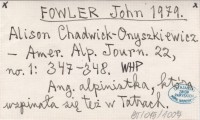 FOWLER John 1979.
Alison Chadwick-Onyszkiewicz
- Amer. Alp. Journ. 22,
no. 1: 347-348. WHP
Ang. alpinistka, która
wspinała się też w Tatrach.